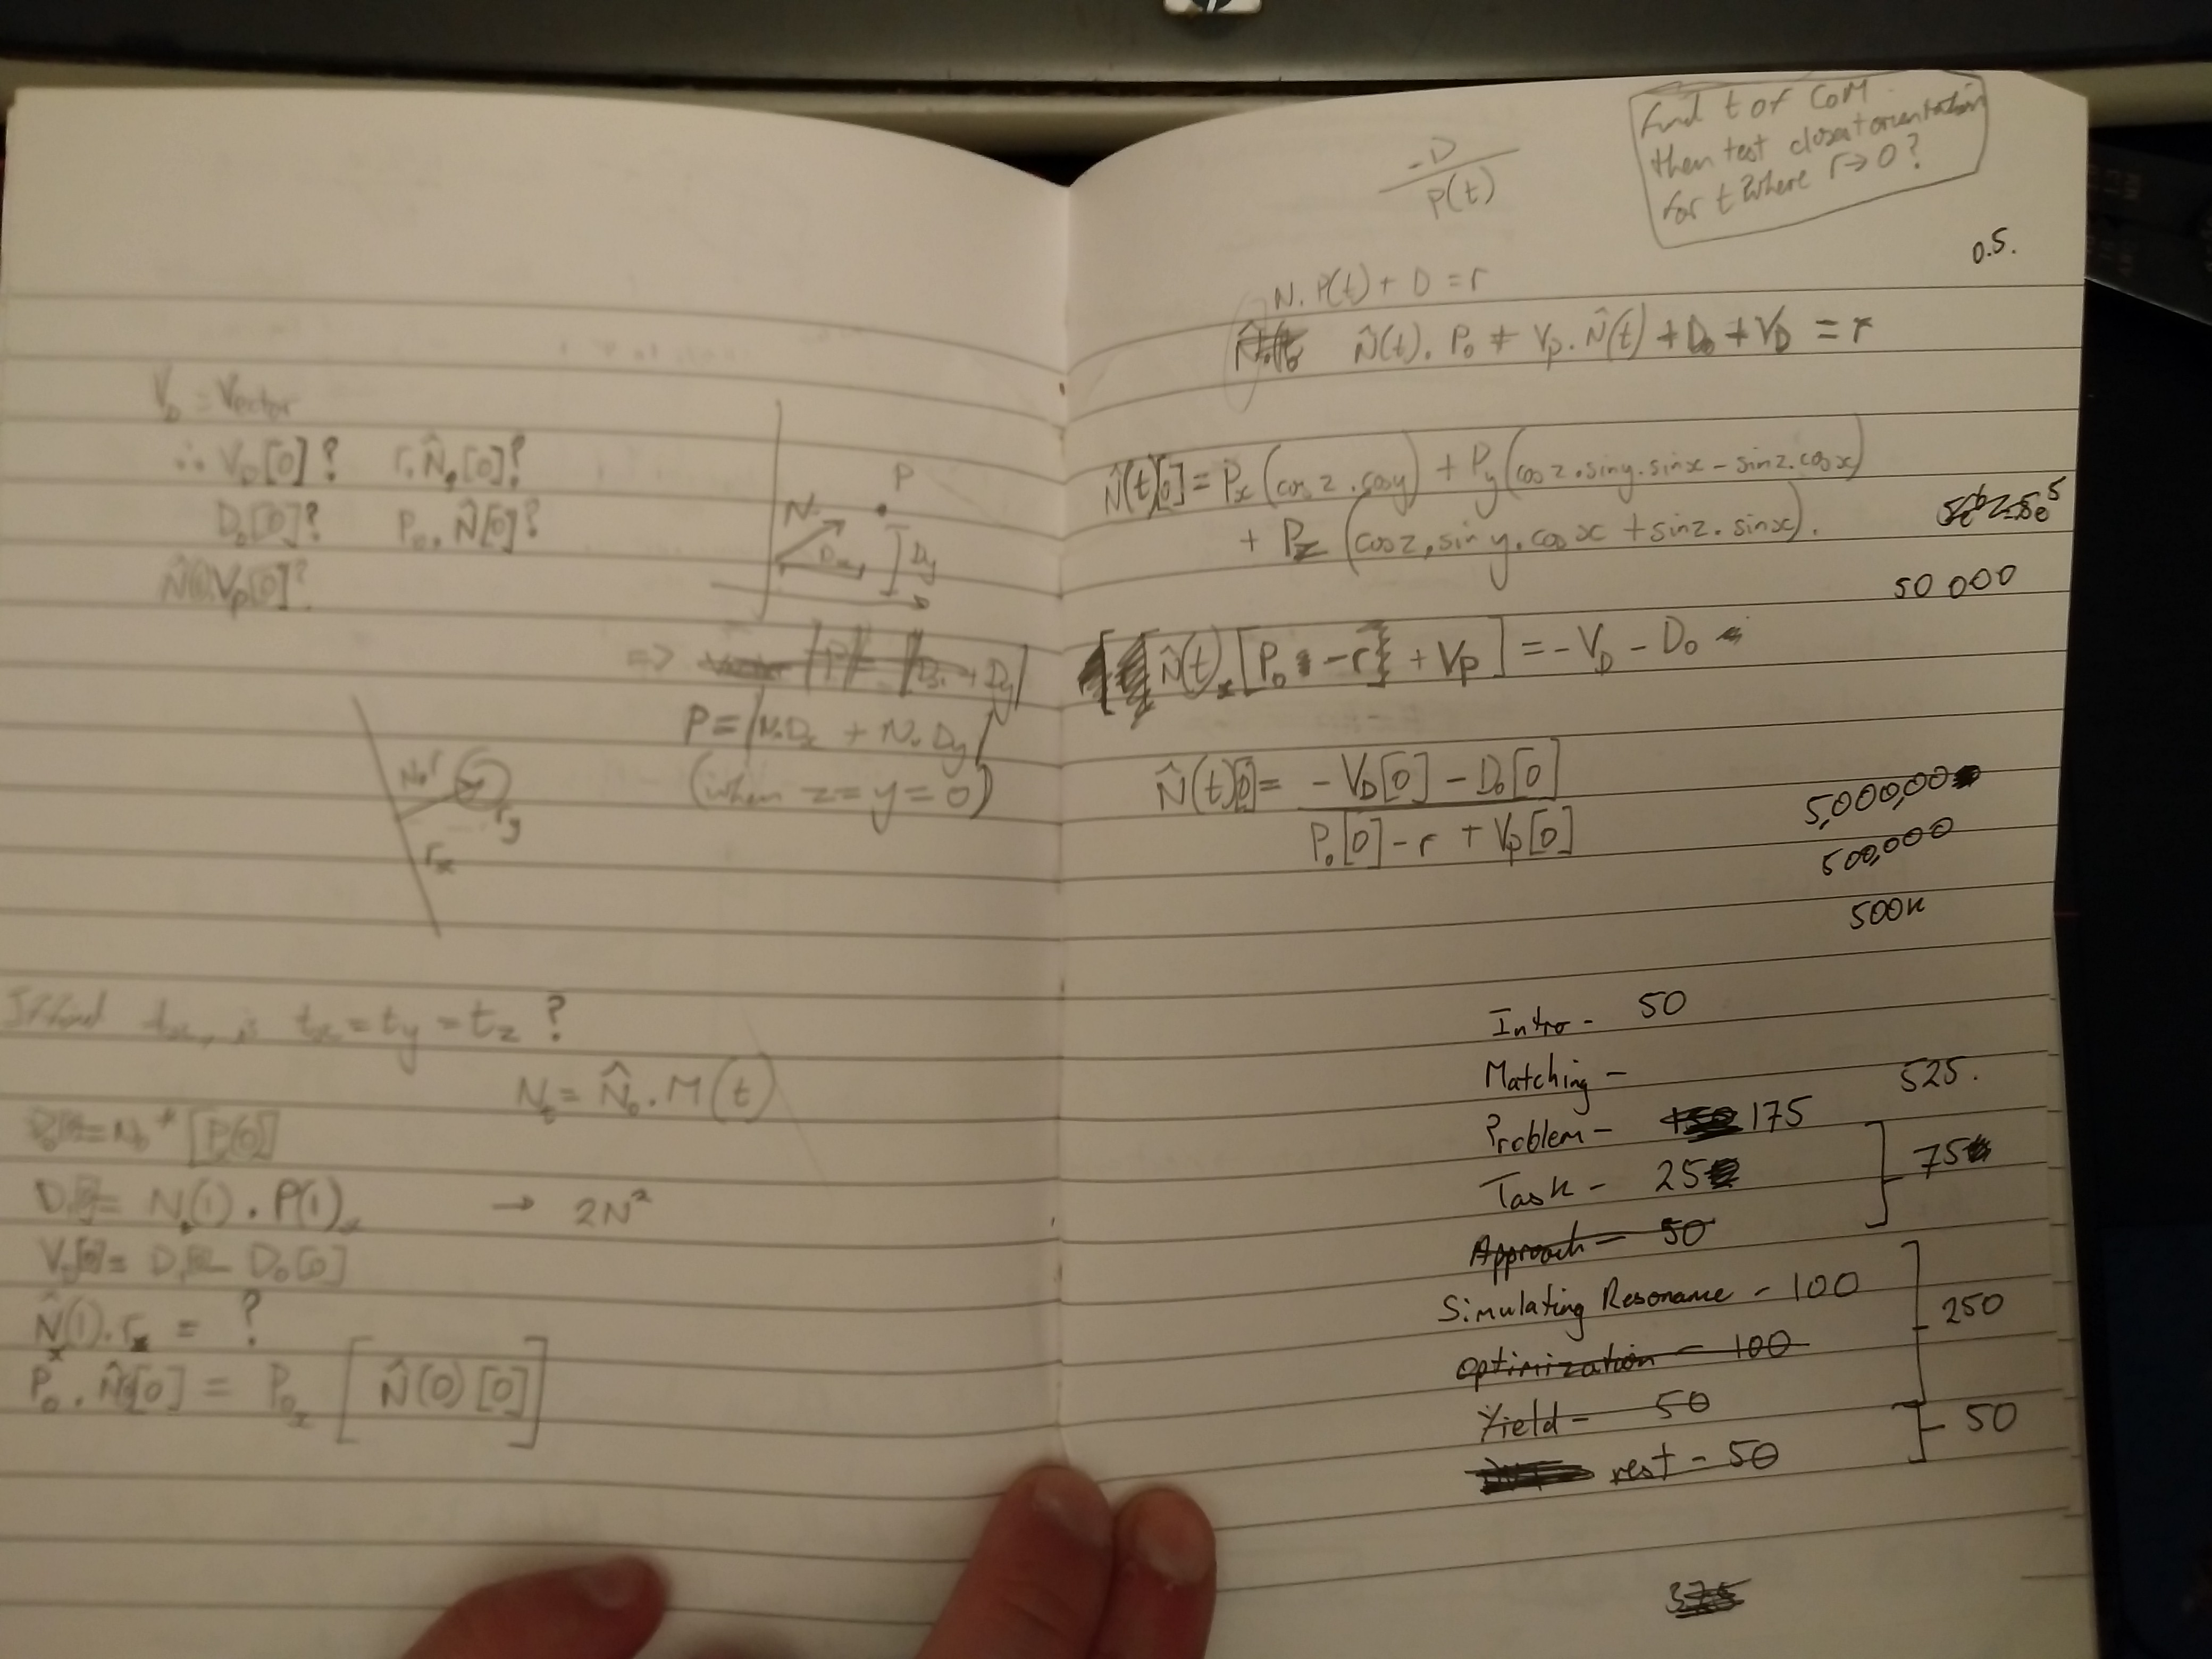 V_D = Vector
∴ V_D[0]? r.N̂_0[0]?
D_0[0]? P_0.N̂[0]?
V_p[0]?
P
N
D_x
D_y
=>
P = |N.D_x + N.D_y|
(when z=y=0)
N.r
r_y
r_x
t_x, is t_x = t_y = t_z ?
N_t = N̂_0 . M(t)
[P(0)]
N(1) . P(1) → 2N²
D_0[0]
N̂(1).r_x = ?
P_0 . N̂[0] = P_0x [N̂(0)[0]]
-D
P(t)
Find t of CoM
then test closest orientation
for t where r→0?
0.5.
N.P(t) + D = r
N̂(t). P_0 + V_p.N̂(t) + D_0 + V_D = r
N̂(t)[0] = P_x (cos z.cos y) + P_y (cos z.sin y.sin x - sin z.cos x)
+ P_z (cos z.sin y.cos x + sin z.sin x).
50 000
N̂(t)_x [P_0 - r + V_p] = -V_D - D_0
N̂(t)[0] = -V_D[0] - D_0[0]
P_0[0] - r + V_p[0]
5,000,00
500,000
500k
Intro - 50
Matching -
525.
Problem - 175
Task - 25
75
Approach - 50
Simulating Resonance - 100
250
Optimization - 100
Yield - 50
rest - 50
50
375